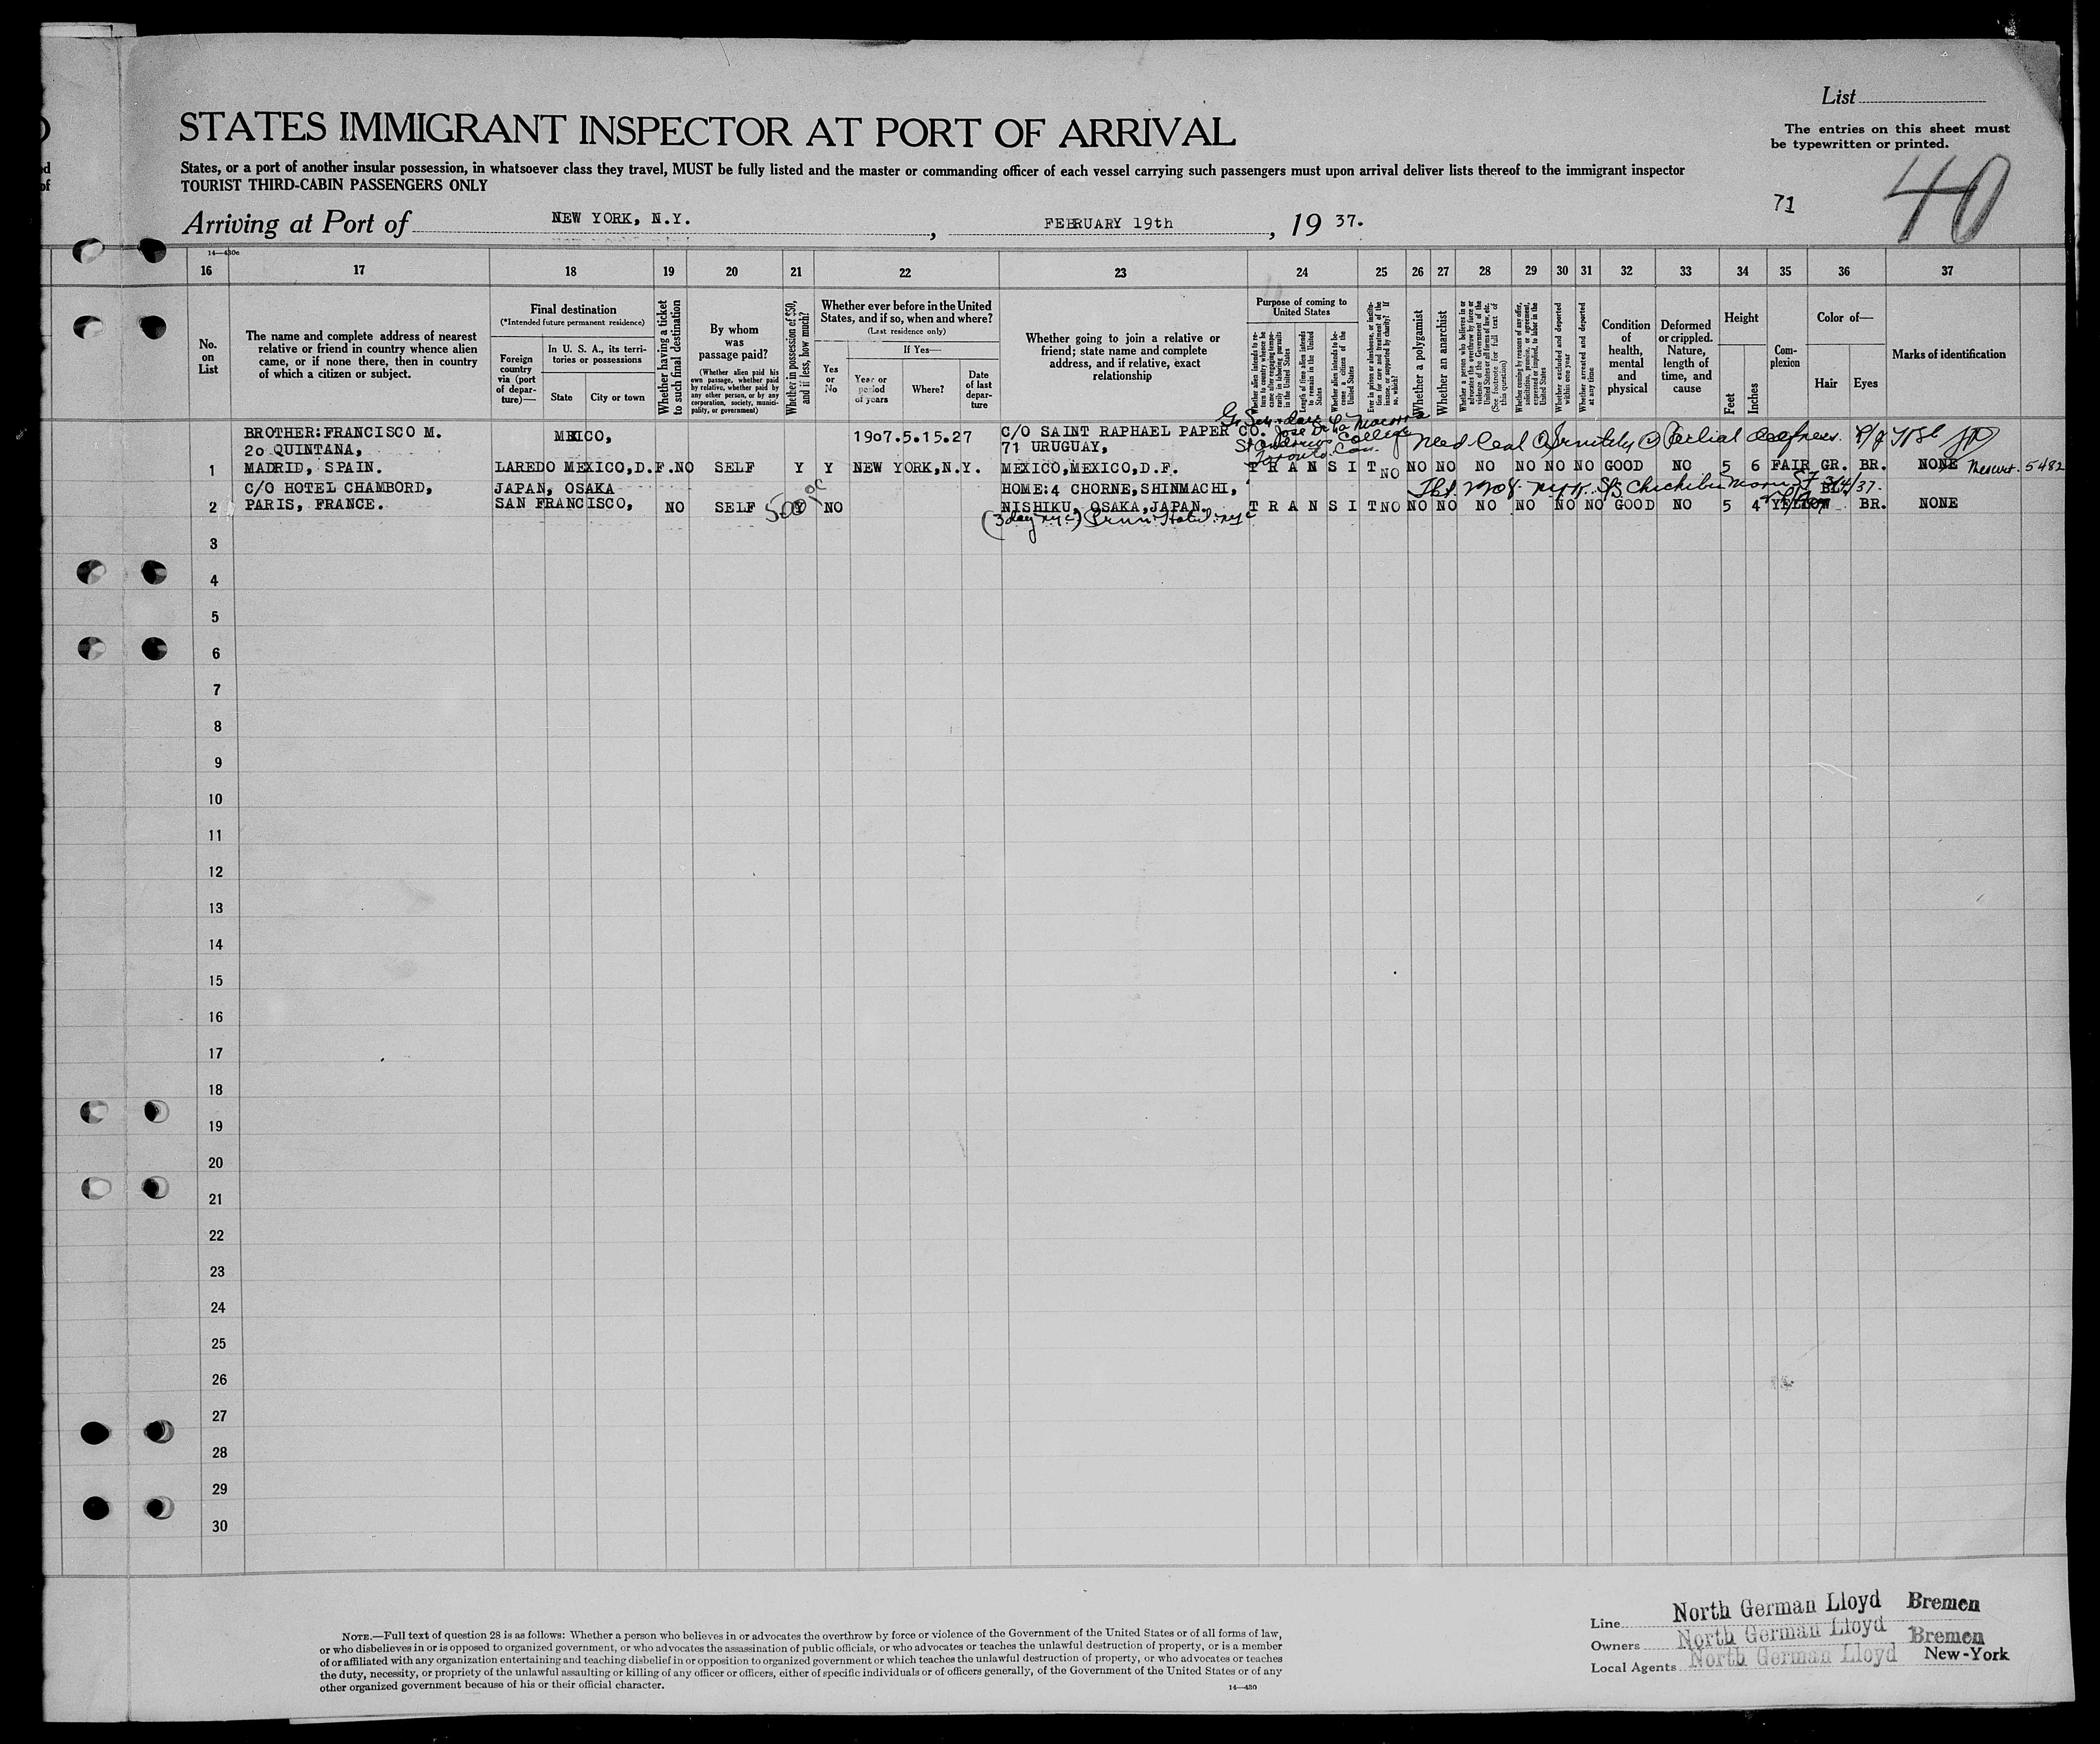 List
STATES IMMIGRANT INSPECTOR AT PORT OF ARRIVAL
The entries on this sheet must
be typewritten or printed.
States, or a port of another insular possession, in whatsoever class they travel, MUST be fully listed and the master or commanding officer of each vessel carrying such passengers must upon arrival deliver lists thereof to the immigrant inspector
TOURIST THIRD-CABIN PASSENGERS ONLY
71
40
Arriving at Port of NEW YORK, N.Y., FEBRUARY 19th, 19 37.
14—430c
16 17 18 19 20 21 22 23 24 25 26 27 28 29 30 31 32 33 34 35 36 37
No. on List
The name and complete address of nearest relative or friend in country whence alien came, or if none there, then in country of which a citizen or subject.
Final destination
(*Intended future permanent residence)
Foreign country via (port of departure)—
In U. S. A., its territories or possessions
State
City or town
Whether having a ticket to such final destination
By whom was passage paid?
(Whether alien paid his own passage, whether paid by relative, whether paid by any other person, or by any corporation, society, municipality, or government)
Whether in possession of $50, and if less, how much?
Whether ever before in the United States, and if so, when and where?
(Last residence only)
Yes or No
If Yes—
Year or period of years
Where?
Date of last departure
Whether going to join a relative or friend; state name and complete address, and if relative, exact relationship
Purpose of coming to United States
Whether alien intends to return to country whence he came after engaging temporarily in laboring pursuits in the United States
Length of time alien intends to remain in the United States
Whether alien intends to become a citizen of the United States
Ever in prison or almshouse, or institution for care and treatment of the insane, or supported by charity? If so, which?
Whether a polygamist
Whether an anarchist
Whether a person who believes in or advocates the overthrow by force or violence of the Government of the United States or all forms of law, etc. (See footnote for full text of this question)
Whether coming by reason of any offer, solicitation, promise, or agreement, expressed or implied, to labor in the United States
Whether excluded and deported within one year
Whether arrested and deported at any time
Condition of health, mental and physical
Deformed or crippled. Nature, length of time, and cause
Height
Feet
Inches
Complexion
Color of—
Hair
Eyes
Marks of identification
BROTHER:FRANCISCO M. MEXICO, 1907.5.15.27 C/O SAINT RAPHAEL PAPER CO.
20 QUINTANA, 71 URUGUAY,
St Andrews College
Toronto Can.
1 MADRID, SPAIN. LAREDO MEXICO,D.F. NO SELF Y Y NEW YORK,N.Y. MEXICO,MEXICO,D.F. TRANSIT NO NO NO NO NO NO NO GOOD NO 5 6 FAIR GR. BR. NONE 5482
C/O HOTEL CHAMBORD, JAPAN, OSAKA HOME:4 CHORNE,SHINMACHI, BL.
2 PARIS, FRANCE. SAN FRANCISCO, NO SELF 500 Y NO NISHIKU, OSAKA,JAPAN. TRANSIT NO NO NO NO NO NO NO GOOD NO 5 4 YELLOW BR. NONE
3
4
5
6
7
8
9
10
11
12
13
14
15
16
17
18
19
20
21
22
23
24
25
26
27
28
29
30
NOTE.—Full text of question 28 is as follows: Whether a person who believes in or advocates the overthrow by force or violence of the Government of the United States or of all forms of law,
or who disbelieves in or is opposed to organized government, or who advocates the assassination of public officials, or who advocates or teaches the unlawful destruction of property, or is a member
of or affiliated with any organization entertaining and teaching disbelief in or opposition to organized government or which teaches the unlawful destruction of property, or who advocates or teaches
the duty, necessity, or propriety of the unlawful assaulting or killing of any officer or officers, either of specific individuals or of officers generally, of the Government of the United States or of any
other organized government because of his or their official character.
14—430
Line North German Lloyd Bremen
Owners North German Lloyd Bremen
Local Agents North German Lloyd New-York